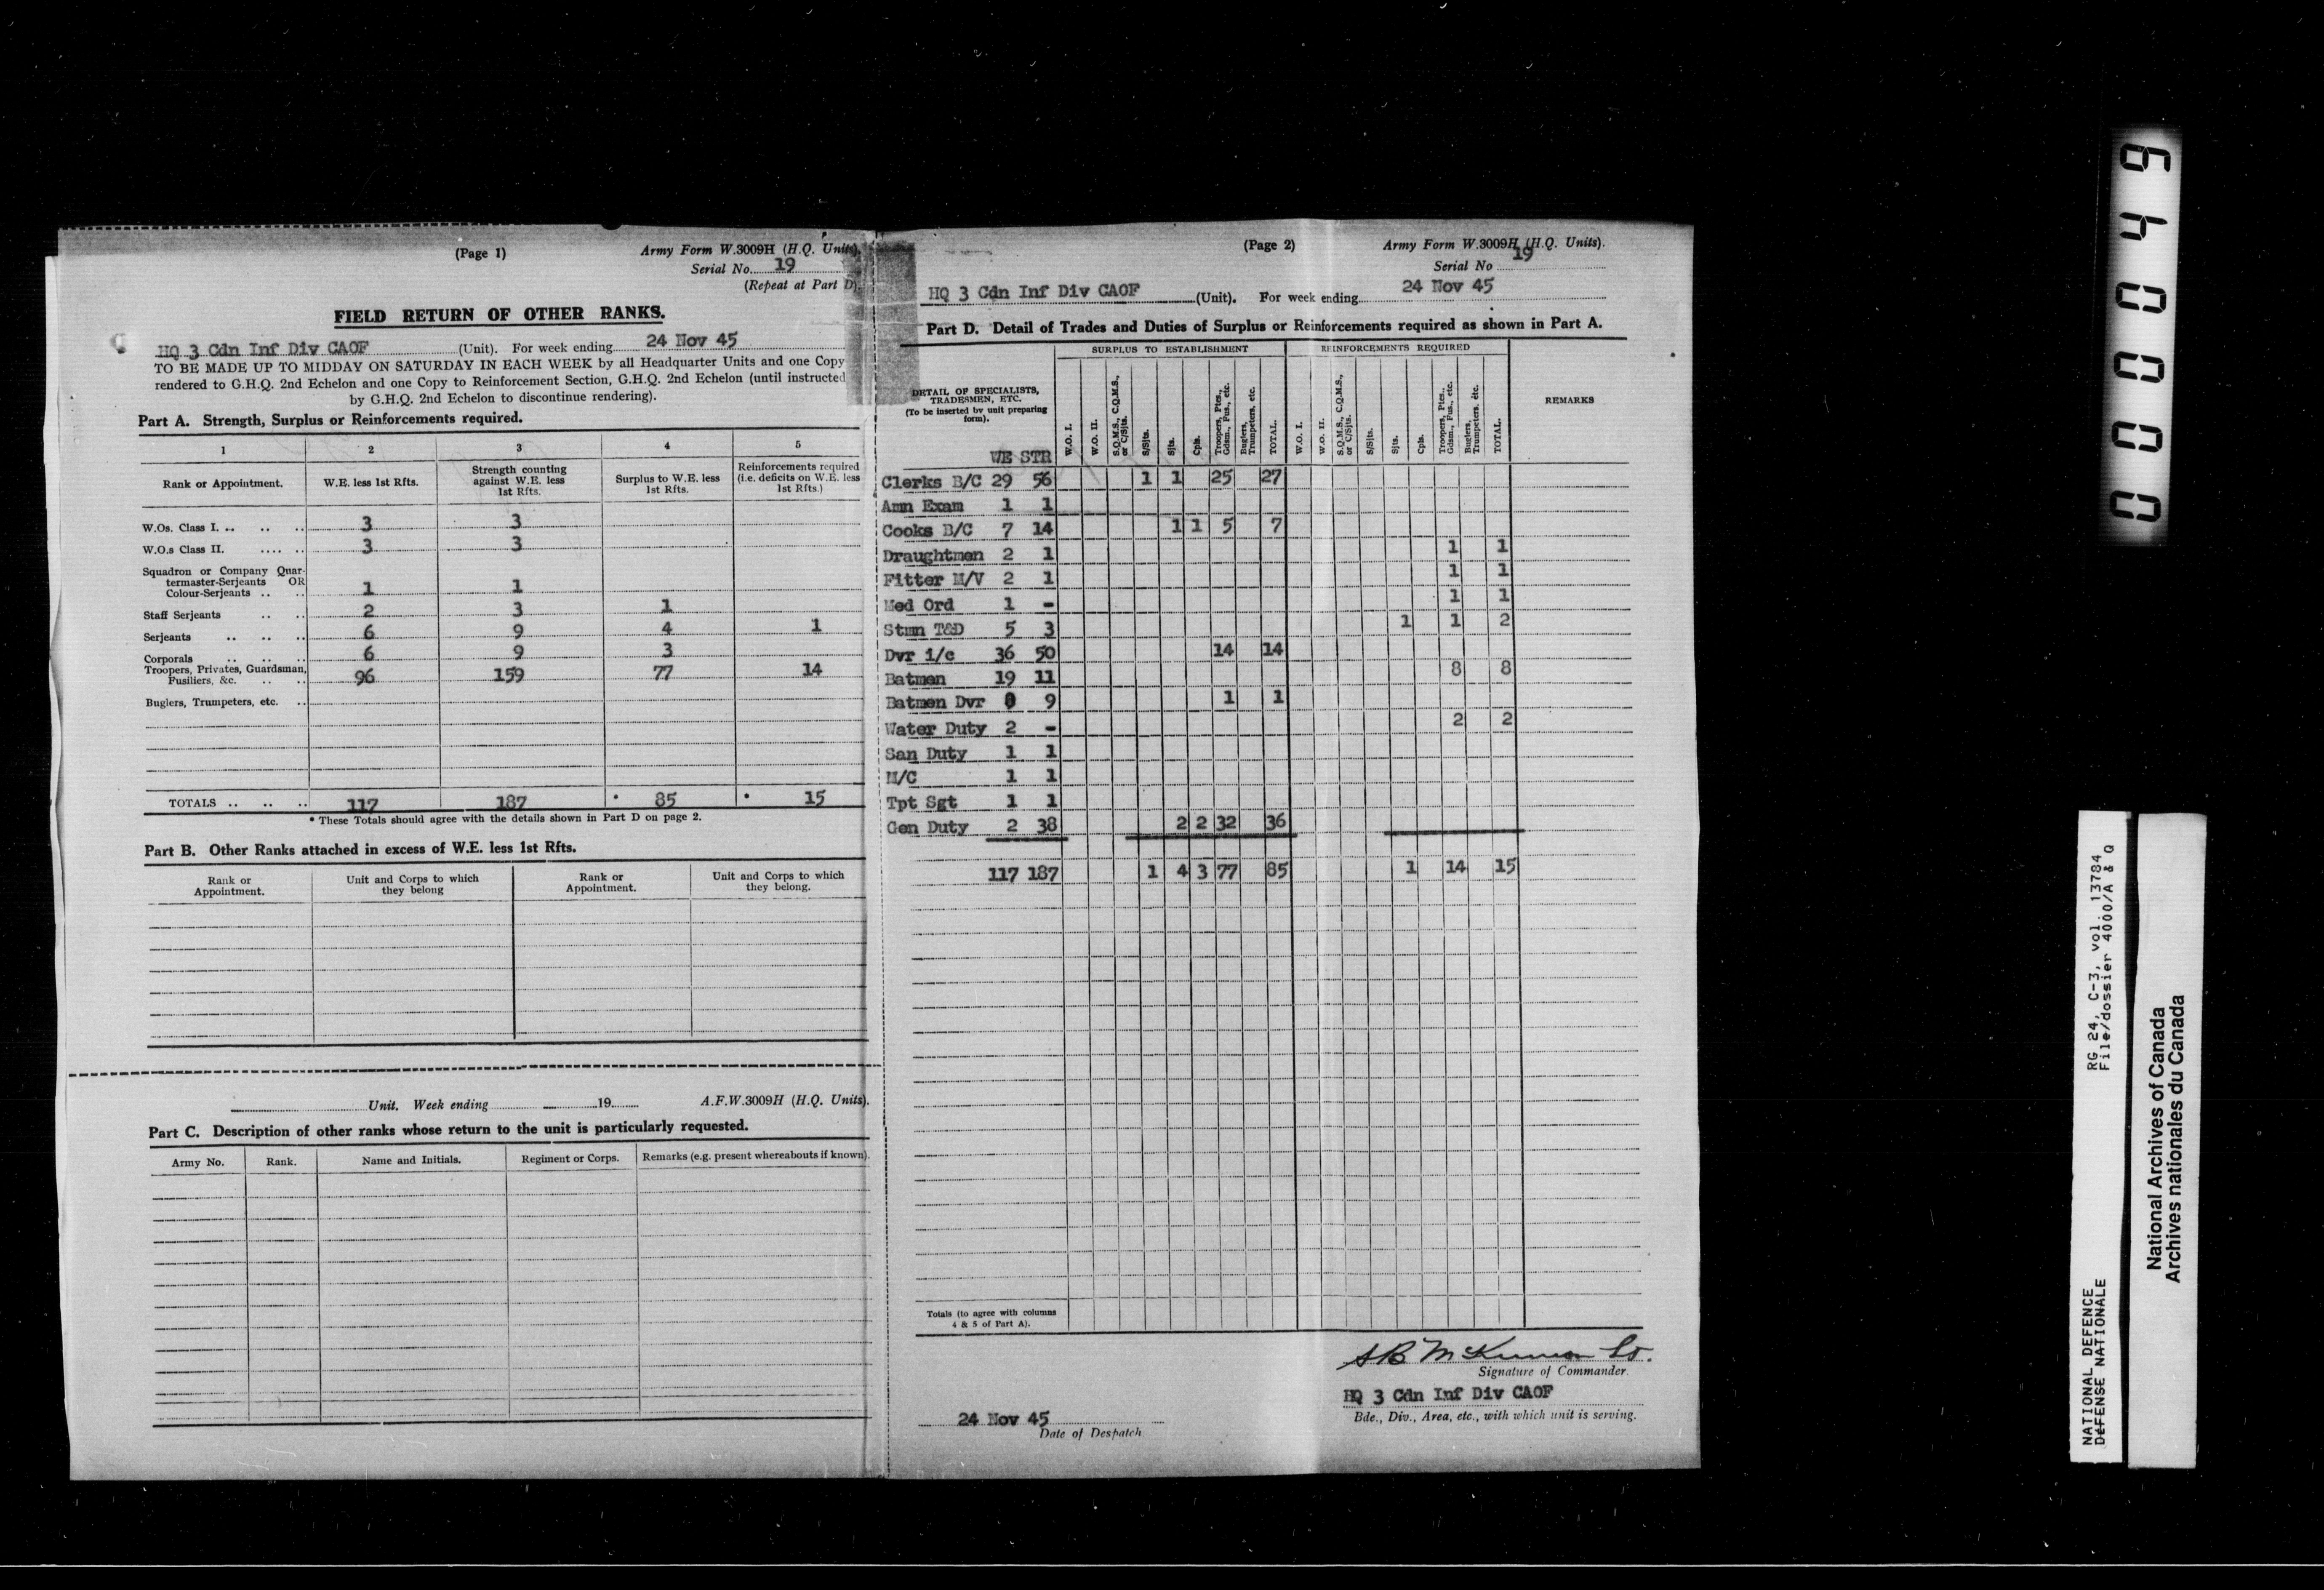 (Page 1)
Army Form W.3009H (H.Q. Units).
Serial No. 19
(Repeat at Part D).
FIELD RETURN OF OTHER RANKS.
HQ 3 Cdn Inf Div CAOF (Unit). For week ending 24 Nov 45
TO BE MADE UP TO MIDDAY ON SATURDAY IN EACH WEEK by all Headquarter Units and one Copy
rendered to G.H.Q. 2nd Echelon and one Copy to Reinforcement Section, G.H.Q. 2nd Echelon (until instructed
by G.H.Q. 2nd Echelon to discontinue rendering).
Part A. Strength, Surplus or Reinforcements required.
1 2 3 4 5
Rank or Appointment. W.E. less 1st Rfts. Strength counting against W.E. less 1st Rfts. Surplus to W.E. less 1st Rfts. Reinforcements required (i.e. deficits on W.E. less 1st Rfts.)
W.Os. Class I. .. .. .. 3 3
W.O.s Class II. .... .. 3 3
Squadron or Company Quar-
termaster-Serjeants OR
Colour-Serjeants .. .. 1 1
Staff Serjeants .. .. 2 3 1
Serjeants .. .. .. 6 9 4 1
Corporals .. .. .. 6 9 3
Troopers, Privates, Guardsman,
Fusiliers, &c. .. .. 96 159 77 14
Buglers, Trumpeters, etc. ..
TOTALS .. .. .. 117 187 * 85 * 15
* These Totals should agree with the details shown in Part D on page 2.
Part B. Other Ranks attached in excess of W.E. less 1st Rfts.
Rank or Appointment. Unit and Corps to which they belong Rank or Appointment. Unit and Corps to which they belong.
Unit. Week ending 19 A.F.W.3009H (H.Q. Units).
Part C. Description of other ranks whose return to the unit is particularly requested.
Army No. Rank. Name and Initials. Regiment or Corps. Remarks (e.g. present whereabouts if known).
(Page 2)
Army Form W.3009H (H.Q. Units).
Serial No 19
HQ 3 Cdn Inf Div CAOF (Unit). For week ending 24 Nov 45
Part D. Detail of Trades and Duties of Surplus or Reinforcements required as shown in Part A.
SURPLUS TO ESTABLISHMENT REINFORCEMENTS REQUIRED
DETAIL OF SPECIALISTS,
TRADESMEN, ETC.
(To be inserted by unit preparing
form).
W.O. I. W.O. II. S.Q.M.S., C.Q.M.S., or C/Sjts. S/Sjts. Sjts. Cpls. Troopers, Ptes., Gdsm., Fus., etc. Buglers, Trumpeters, etc. TOTAL. W.O. I. W.O. II. S.Q.M.S., C.Q.M.S., or C/Sjts. S/Sjts. Sjts. Cpls. Troopers, Ptes., Gdsm., Fus., etc. Buglers, Trumpeters, etc. TOTAL. REMARKS
WE STR
Clerks B/C 29 56 1 1 25 27
Amn Exam 1 1
Cooks B/C 7 14 1 1 5 7
Draughtmen 2 1 1 1
Fitter M/V 2 1 1 1
Med Ord 1 - 1 1
Stmn T&D 5 3 1 1 2
Dvr i/c 36 50 14 14
Batmen 19 11 8 8
Batmen Dvr 9 1 1
Water Duty 2 - 2 2
San Duty 1 1
M/C 1 1
Tpt Sgt 1 1
Gen Duty 2 38 2 2 32 36
117 187 1 4 3 77 85 1 14 15
Totals (to agree with columns
4 & 5 of Part A).
Signature of Commander.
HQ 3 Cdn Inf Div CAOF
Bde., Div., Area, etc., with which unit is serving.
24 Nov 45
Date of Despatch
000049
RG 24, C-3, vol. 13784
File/dossier 4000/A & Q
NATIONAL DEFENCE
DEFENSE NATIONALE
National Archives of Canada
Archives nationales du Canada